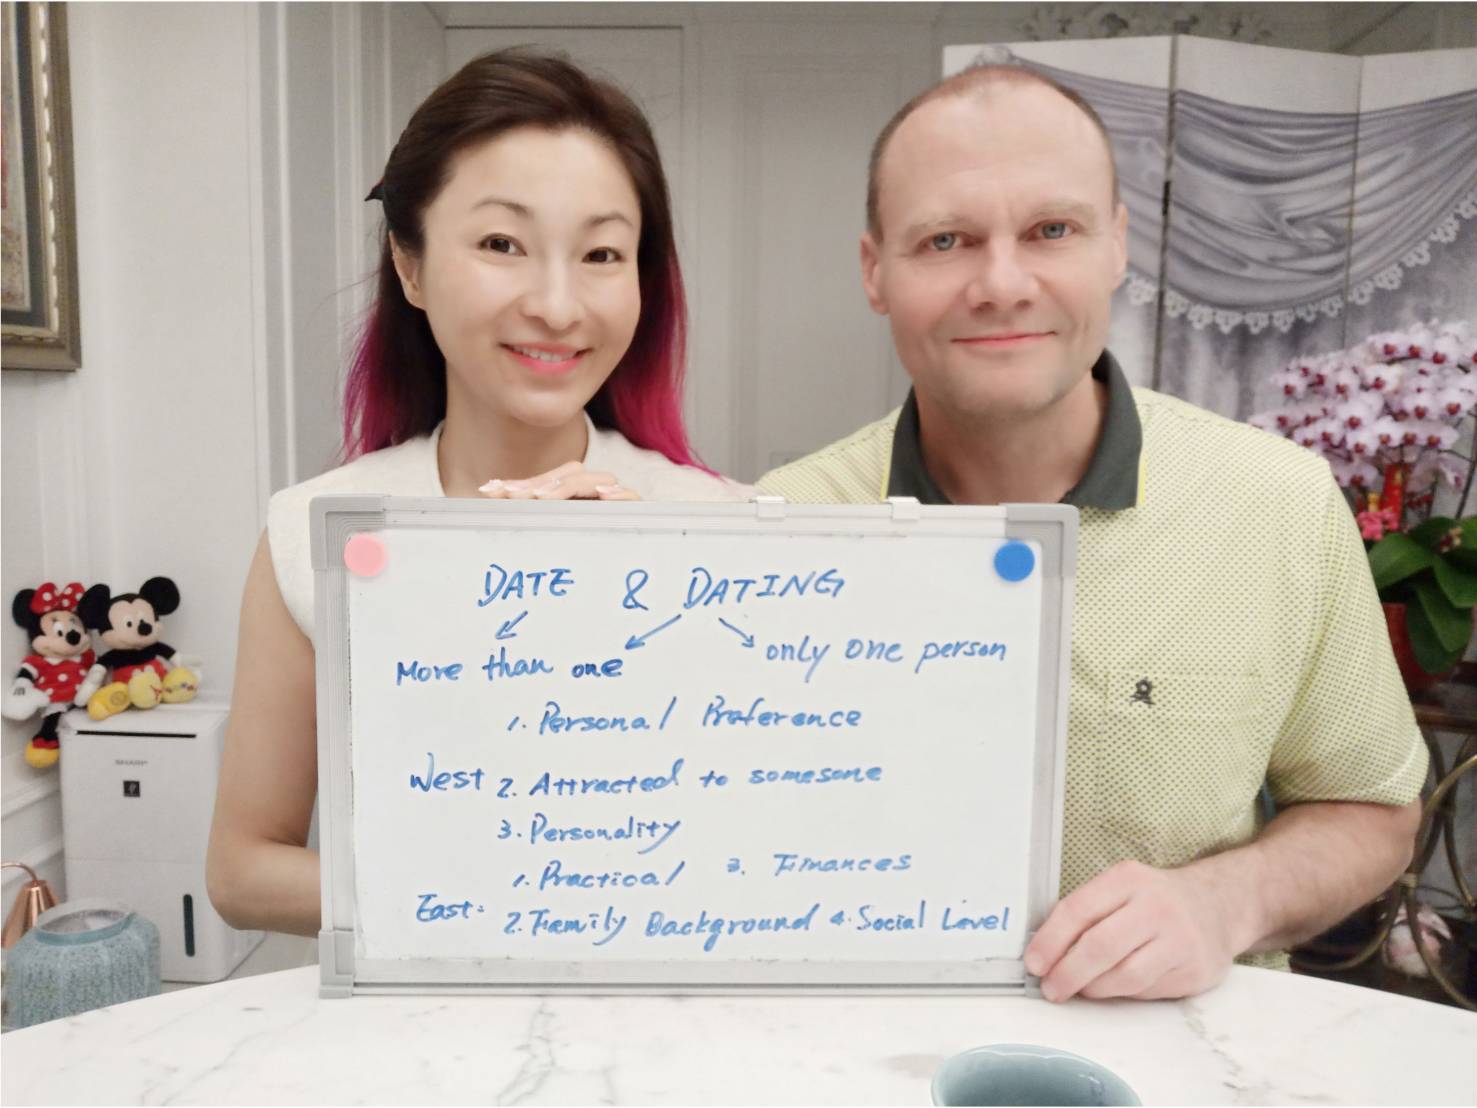 DATE & DATING
More than one
only one person
1. Personal Preference
West 2. Attracted to somesone
3. Personality
1. Practical 3. Finances
East: 2. Family Background 4. Social Level
SHARP